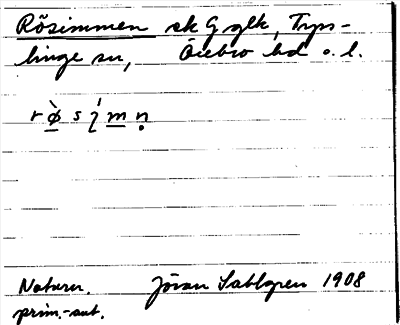 Rösimmen sk G glk, Tys-
linge sn, Örebro hd o. l.
r ø̀ s ɩ́ m n̥
Naturn. Jöran Sahlgren 1908
prim.-sut.